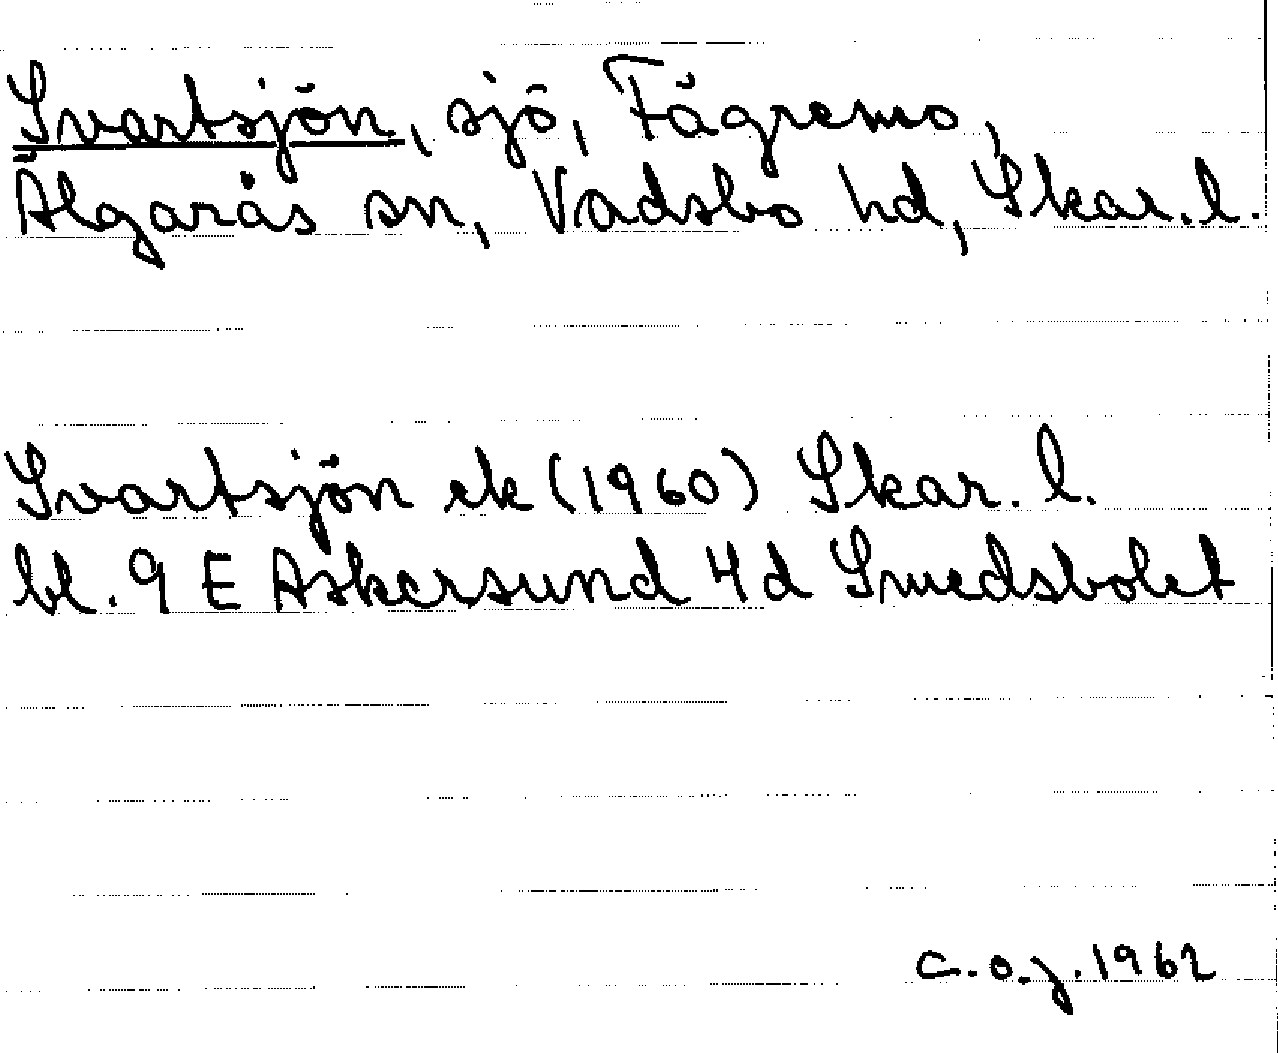 Svartsjön, sjö, Fägremo,
Älgarås sn, Vadsbo hd, Skar. l.
Svartsjön ek (1960) Skar. l.
bl. 9 E Askersund 4 d Smedsbolet
C.O.J. 1962